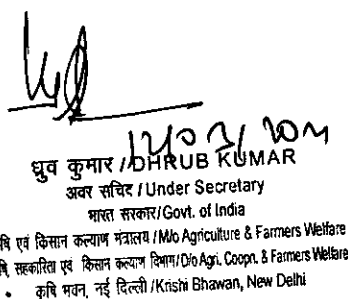 ध्रुव कुमार / DHRUB KUMAR
अवर सचिव / Under Secretary
भारत सरकार/Govt. of India
षि एवं किसान कल्याण मंत्रालय / M/o Agriculture & Farmers Welfare
षि, सहकारिता एवं किसान कल्याण विभाग/D/o Agri. Coopn. & Farmers Welfare
कृषि भवन, नई दिल्ली /Krishi Bhawan, New Delhi